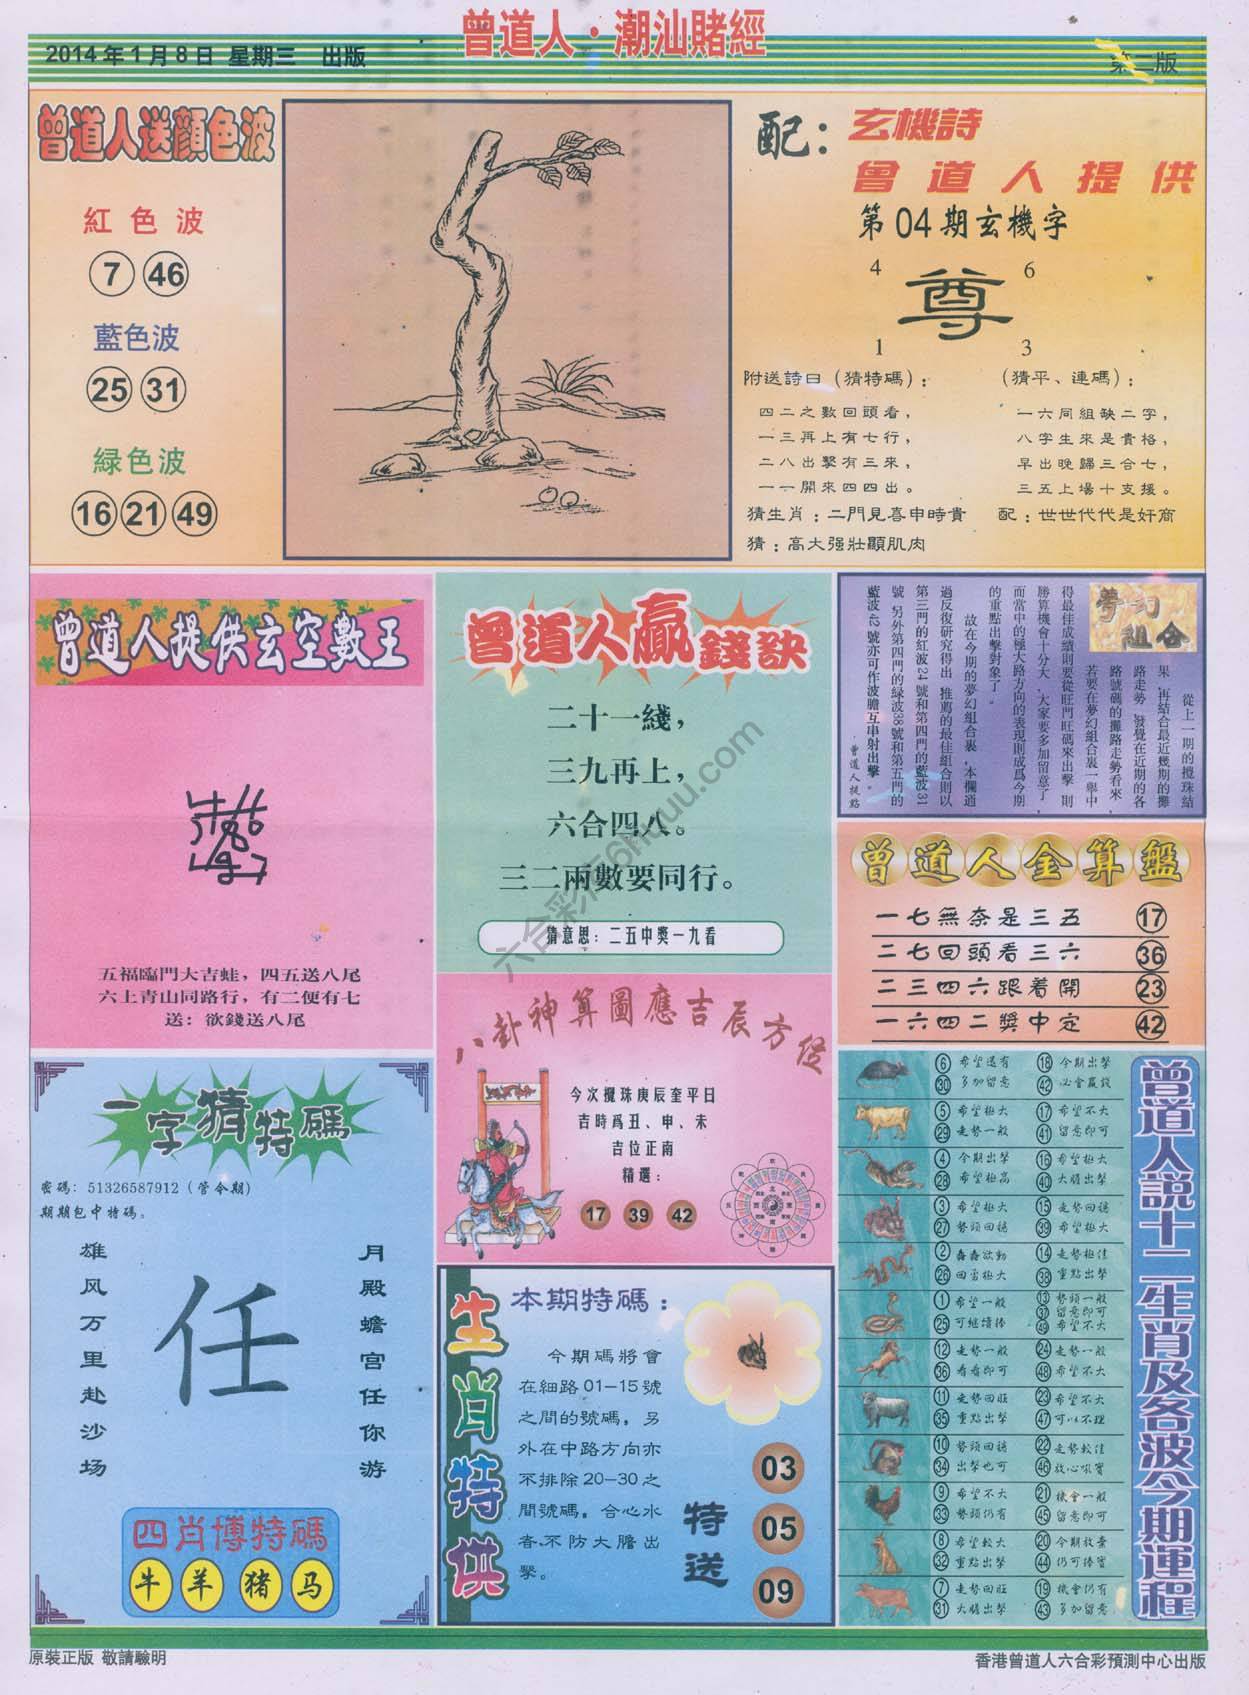 曾道人·潮汕賭經
2014年1月8日 星期三 出版
第二版
曾道人送顔色波
紅色波
7 46
藍色波
25 31
緑色波
16 21 49
配：玄機詩
曾道人提供
第04期玄機字
4 6
尊
1 3
附送詩曰（猜特碼）：
四二之數回頭看，
一三再上有七行，
二八出擊有三來，
一一開來四四出。
（猜平、連碼）：
一六同組缺二字，
八字生來是貴格，
早出晚歸三合七，
三五上場十支援。
猜生肖：二門見喜申時貴
配：世世代代是奸商
猜：高大强壯顯肌肉
曾道人提供玄空數王
五福臨門大吉蛙，四五送八尾
六上青山同路行，有二便有七
送：欲錢送八尾
曾道人贏錢訣
二十一綫，
三九再上，
六合四八。
三二兩數要同行。
猜意思：二五中獎一九看
夢幻組合
從上一期的攪珠結
果，再結合最近幾期的攤
路走勢，發覺在近期的各
路號碼的攤路走勢看來，
若要在夢幻組合裏一舉中
得最佳成績則要從旺門旺碼來出擊，則
勝算機會十分大，大家要多加留意了，
而當中的極大路方向的表現則成爲今期
的重點出擊對象了。
故在今期的夢幻組合裏，本欄通
過反復研究得出，推薦的最佳組合則以
第三門的紅波24號和第四門的藍波31
號，另外第四門的緑波38號和第五門的
藍波42號亦可作波膽互串射出擊
曾道人提點
曾道人金算盤
一七無奈是三五 17
二七回頭看三六 36
二三四六跟着開 23
一六四二獎中定 42
八卦神算圖應吉辰方從
今次攪珠庚辰奎平日
吉時爲丑、申、未
吉位正南
精選：
17 39 42
一字猜特碼
密碼：51326587912（管令期）
期期包中特碼。
雄风万里赴沙场
任
月殿蟾宫任你游
四肖博特碼
牛 羊 猪 马
生肖特供
本期特碼：
今期碼將會
在細路01-15號
之間的號碼，另
外在中路方向亦
不排除20-30之
間號碼，合心水
者，不防大膽出
擊。
特送
03
05
09
曾道人説十二生肖及各波今期運程
6 希望還有 18 今期出擊
30 多加留意 42 必會贏錢
5 希望極大 17 希望不大
29 走勢一般 41 留意即可
4 今期出擊 16 希望極大
28 希望極高 40 大膽出擊
3 希望極大 15 走勢回穩
27 勢頭回穩 39 希望極大
2 蠢蠢欲動 14 走勢極佳
26 回雲極大 38 重點出擊
1 希望一般 13 勢頭一般
37 留意即可
25 可繼續捧 49 希望不大
12 走勢一般 24 走勢一般
36 看看即可 48 希望不大
11 走勢回旺 23 希望不大
35 重點出擊 47 可以不理
10 勢頭回穩 22 走勢較佳
34 出擊也可 46 放心吼實
9 希望不大 21 機會一般
33 勢頭仍有 45 留意即可
8 希望較大 20 今期放棄
32 重點出擊 44 仍可捧實
7 走勢回旺 19 機會仍有
31 大膽出擊 43 多加留意
六合彩库6huuu.com
原裝正版 敬請驗明
香港曾道人六合彩預測中心出版